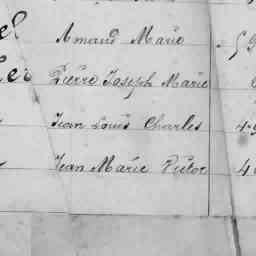 el Amand Mario 59
ker Pierre Joseph Marie
Jean Louis Charles 4
Jean Marie Victor 4